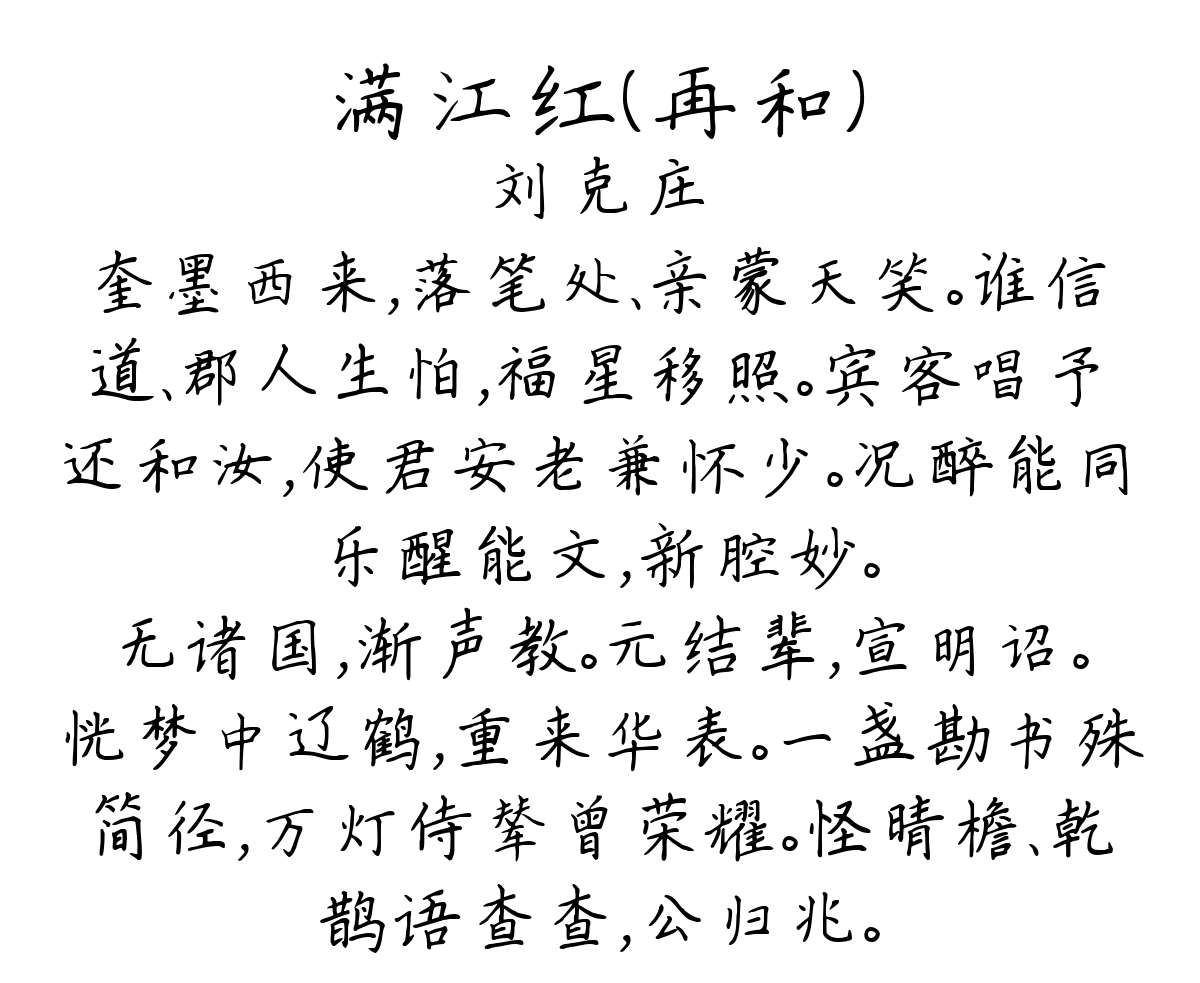 满江红(再和)
刘克庄
奎墨西来,落笔处、亲蒙天笑。谁信
道、郡人生怕,福星移照。宾客唱予
还和汝,使君安老兼怀少。况醉能同
乐醒能文,新腔妙。
无诸国,渐声教。元结辈,宣明诏。
恍梦中辽鹤,重来华表。一盏勘书殊
简径,万灯侍辇曾荣耀。怪晴檐、乾
鹊语查查,公归兆。